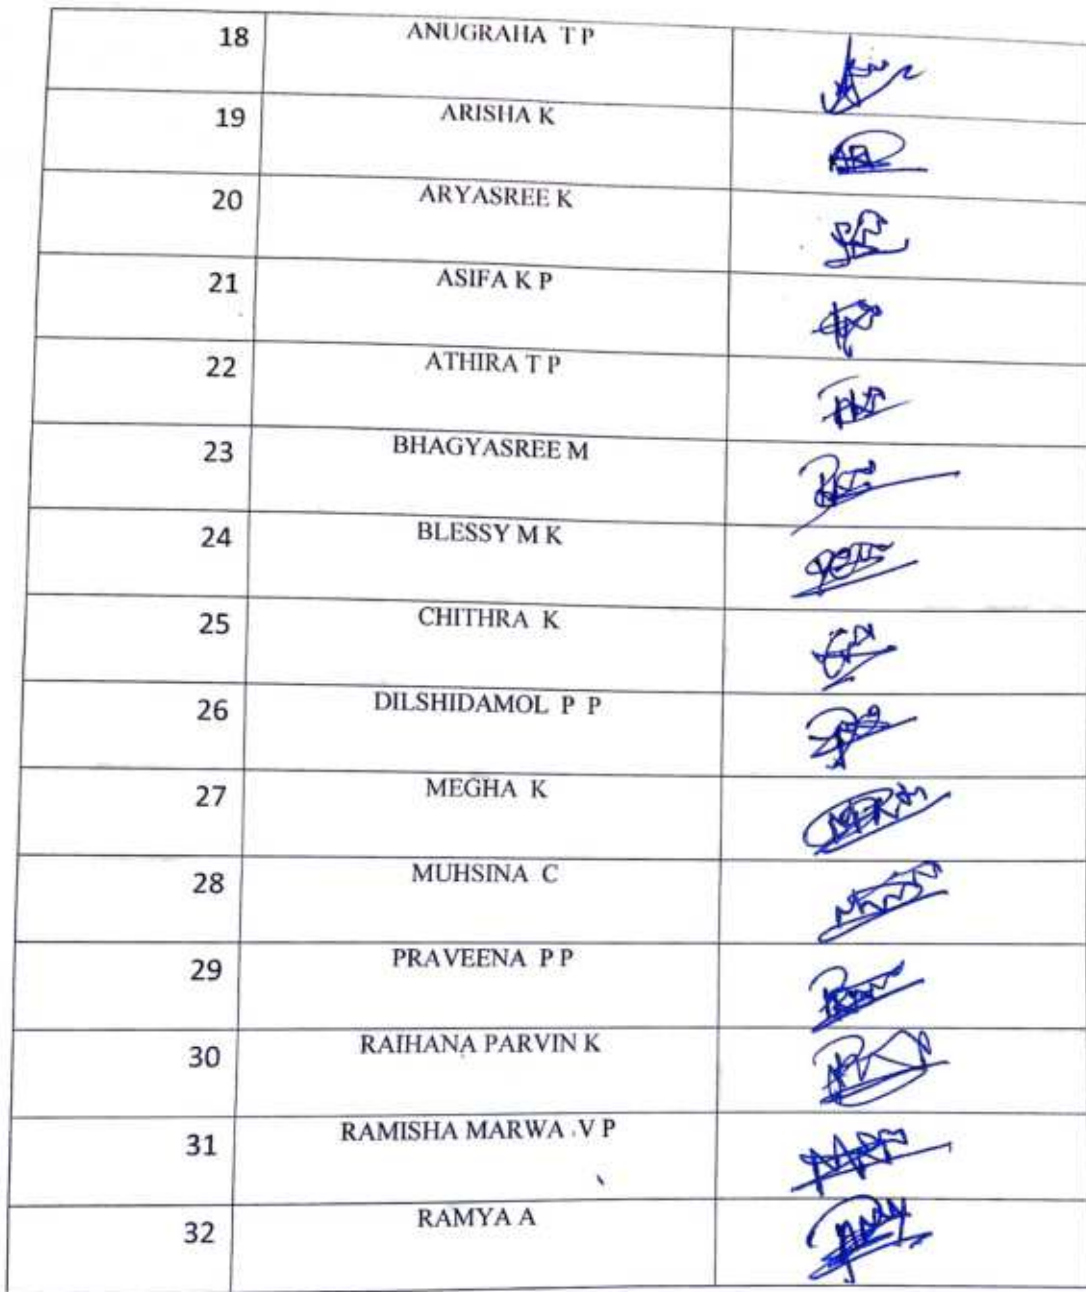 18 ANUGRAHA T P
19 ARISHA K
20 ARYASREE K
21 ASIFA K P
22 ATHIRA T P
23 BHAGYASREE M
24 BLESSY M K
25 CHITHRA K
26 DILSHIDAMOL P P
27 MEGHA K
28 MUHSINA C
29 PRAVEENA P P
30 RAIHANA PARVIN K
31 RAMISHA MARWA V P
32 RAMYA A